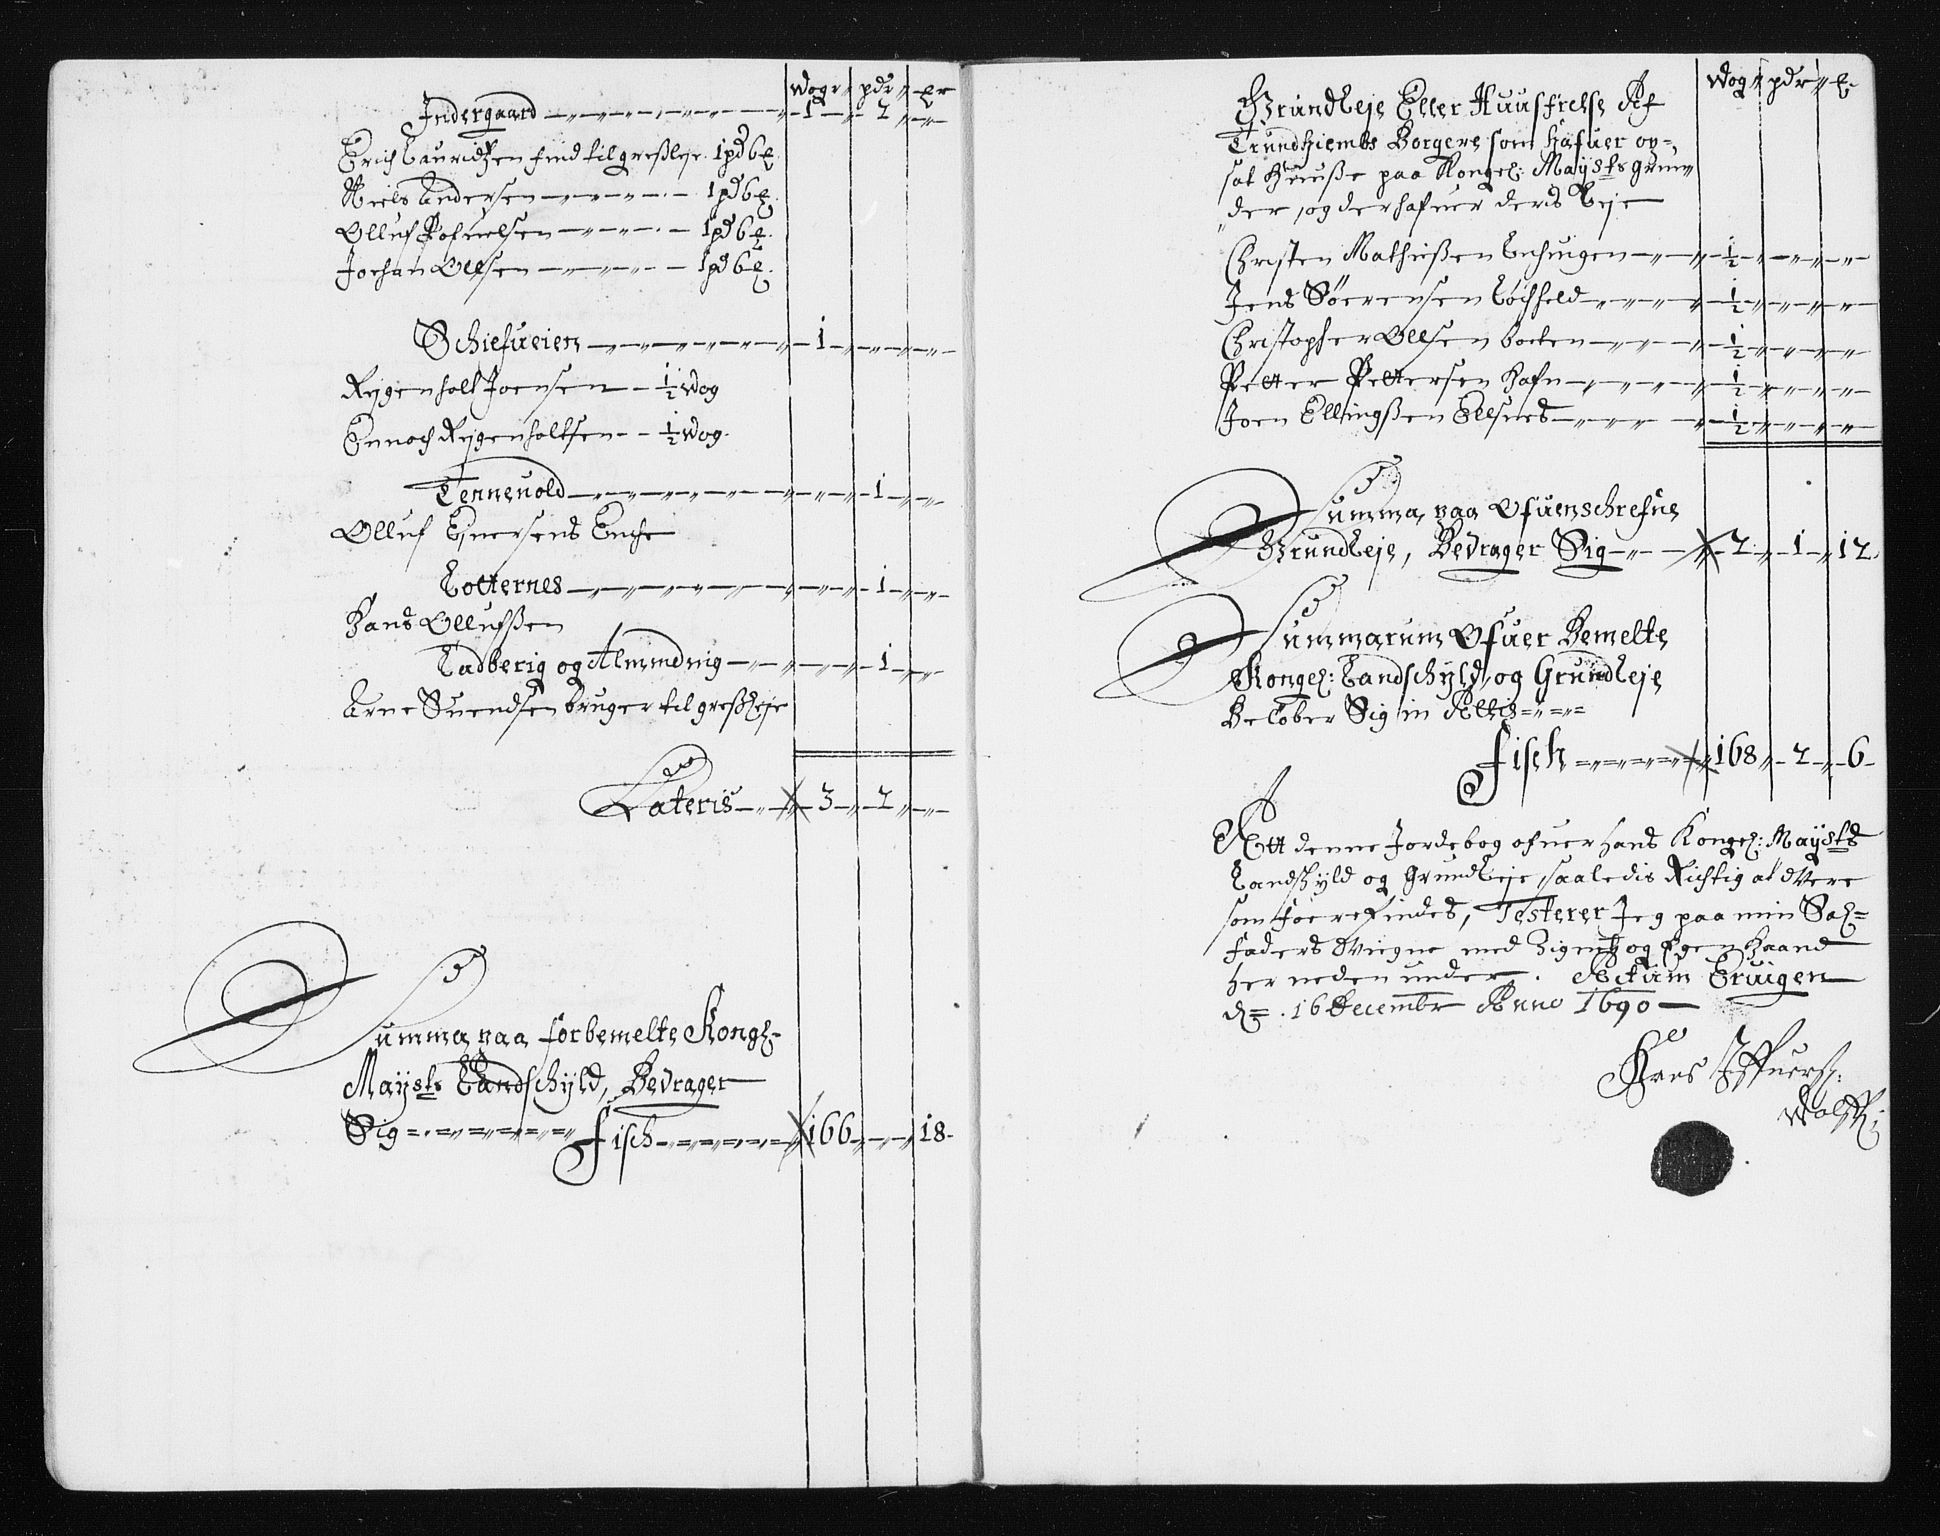 Wogr pdr Er
Indergaard 1 2
Erich Lauridtzen find til gressleje. 1 pd 6 E
Niels Andersen 1 pd 6 E.
Olluf Pofuelsen 1 pd 6 E.
Jochan Ollsen 1 pd 6 E.
Schiefueien 1
Rejgenholt Joensen ½ Wog
Ennoch Rejgenholtsen ½ Wog.
Ternevold 1
Olluf Efversens Enche
Lotternes 1
Hans Ollufssen
Ladberig og Almindnig 1
Arne Suendsen bruger til gressleje
Lateris 3 2
Summa paa forbemelte Kongl-
Maysts Landschyld, Bedrager
Sig Fisch 166 18
Wog pdr E.
Grundleje Eller Huusfrelse Af
Trundhiembs Borgere som hafuer op-
sat Huusse paa Kongel: Maysts grun
der, og der hafuer deris Leje
Christen Mathiessen ½
Jens Söerensen ½
Christopher Ollsen ½
Petter Pettersen Hafn ½
Joen Ellingssen Ellsnes ½
Summa paa Ofuenschrefne
Grundleje, Bedrager Sig 2 1 12.
Summarum Ofuer Bemelte
Kongel: Landschyld, og Grundleje
Beløber Sig in Allis
Fisch 168 2 6
Att denne Jordebog ofuer hans Kongel: Maysts
Landschyld og Grundleje, saaledis Richtig at vere
som föere findes, Testerer Jeg paa min Sal=
faders Wiegne med Zignet og Egen Haand
her neden under. Actum
d=. 16 Decembr Anno 1690
Hans